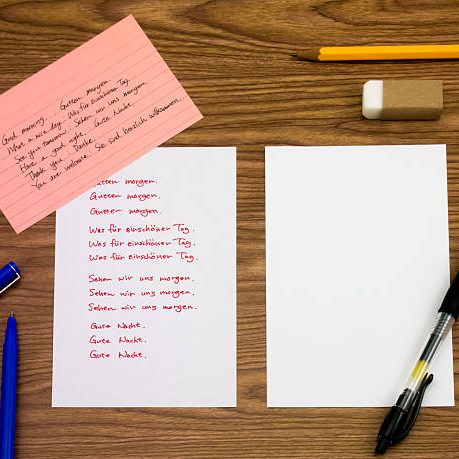 Good morning. Gutten morgen.
What a nice day. Was für einschöner Tag.
See you tomorrow. Sehen wir uns morgen.
Have a good night. Gute Nacht.
Thank you. Danke.
You are welcome. Sie sind herzlich willkommen.
Gutten morgen.
Gutten morgen.
Gutten morgen.
Was für einschöner Tag.
Was für einschöner Tag.
Was für einschöner Tag.
Sehen wir uns morgen.
Sehen wir uns morgen.
Sehen wir uns morgen.
Gute Nacht.
Gute Nacht.
Gute Nacht.